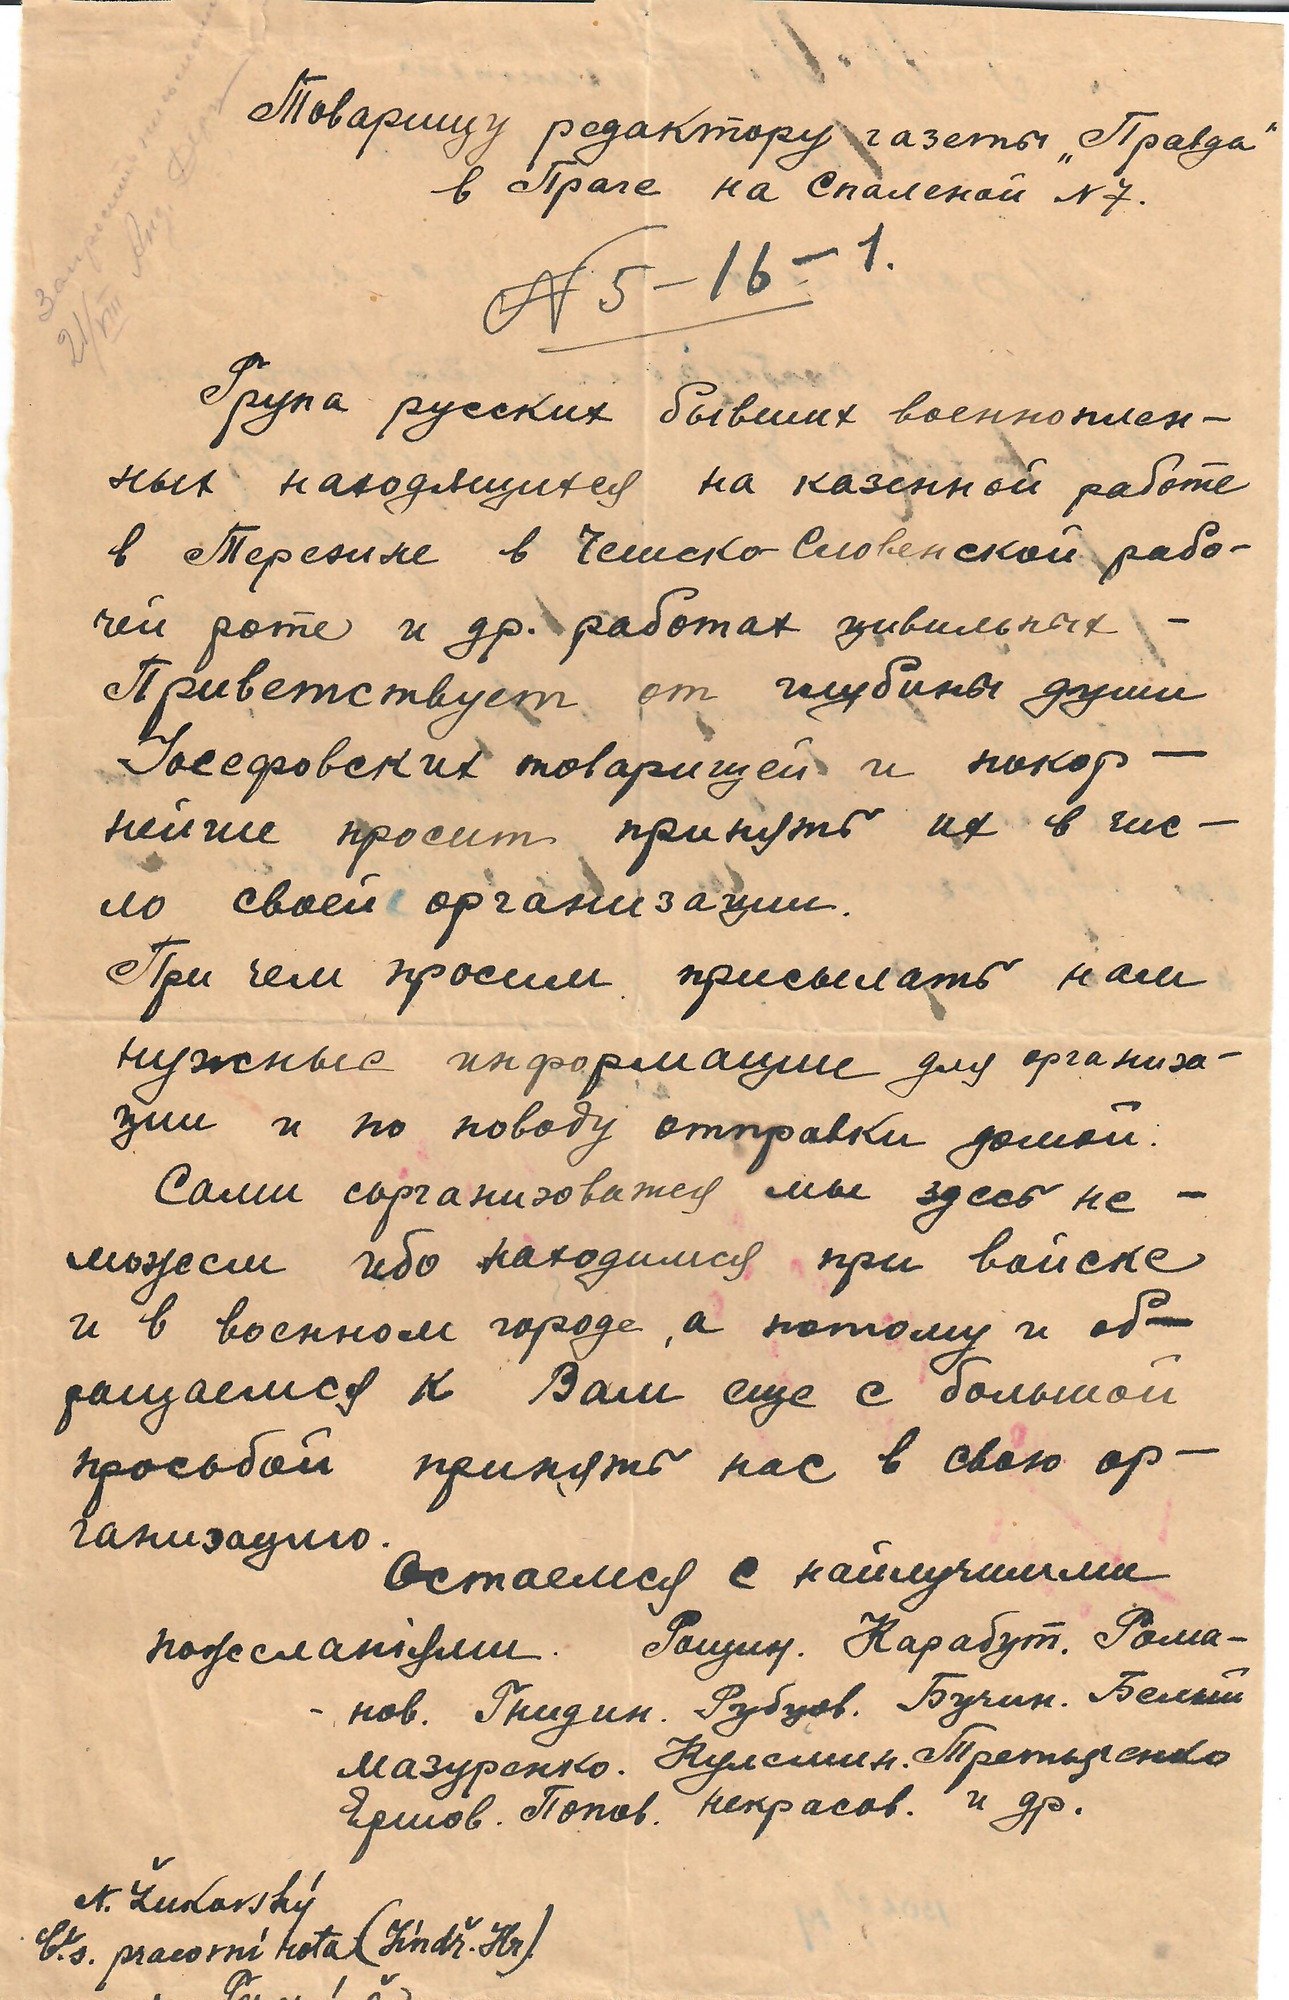 Запросить письменно
21/VIII
Товарищу редактору газеты „Правда“
в Праге на Спаленой N 7.
N 5-16-1.
Група русских бывших военноплен-
ных находящихся на казенной работе
в Терезине в Чешско-Словенской рабо-
чей роте и др. работах цивильных -
Приветствует от глубины души
Иосефовских товарищей и покор-
нейше просит принять их в чис-
ло своей организации.
При чем просим присылать нам
нужные информацие для организа-
ции и по поводу отправки домой.
Сами сорганизоватся мы здесь не -
можем ибо находимся при войске
и в военном городе, а потому и об-
ращаемся к Вам еще с большой
просьбой принять нас в свою ор-
ганизацию.
Остаемся с найлучшими
пожеланіями. Рощин. Карабут. Рома-
- нов. Гнидин. Рубцов. Бучин. Белый
Мазуренко. Кулешин. Третьяченко
Ершов. Попов. Некрасов. и др.
N. Žukovský
Č.s. pracovní rota (Jindř. Hr.)